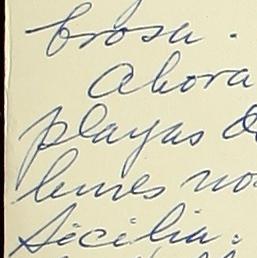 brosa.
Ahora
playas d
lunes no
Sicilia.